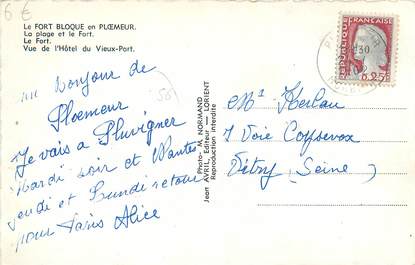 6 €
Le FORT BLOQUE en PLŒMEUR.
La plage et le Fort.
Le Fort.
Vue de l'Hôtel du Vieux-Port.
un bonjour de
Ploemeur
Je vais a Pluvigner
mardi soir et Nantes
jeudi et Lundi retour
pour Paris Alice
56
Photo M. NORMAND
Jean AVRIL, Editeur - LORIENT
Reproduction interdite
REPUBLIQUE FRANÇAISE
0,25F
30
Kerlau
7 Voie Coysevox
Vitry (Seine)